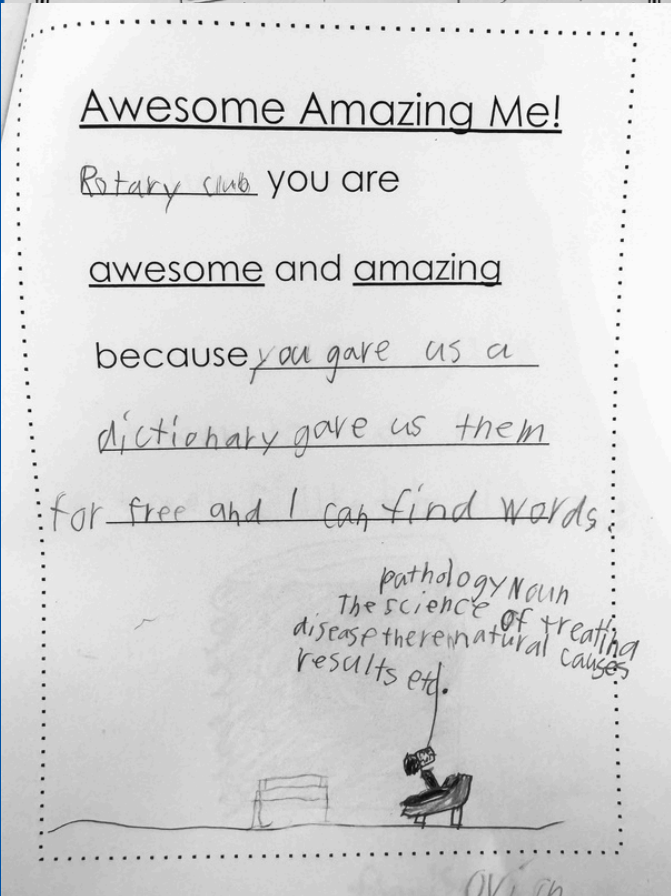 Awesome Amazing Me!
Rotary club you are
awesome and amazing
because you gave us a
dictionary gave us them
for free and I can find words.
pathology Noun
The science of treating
disease there natural causes
results etc.